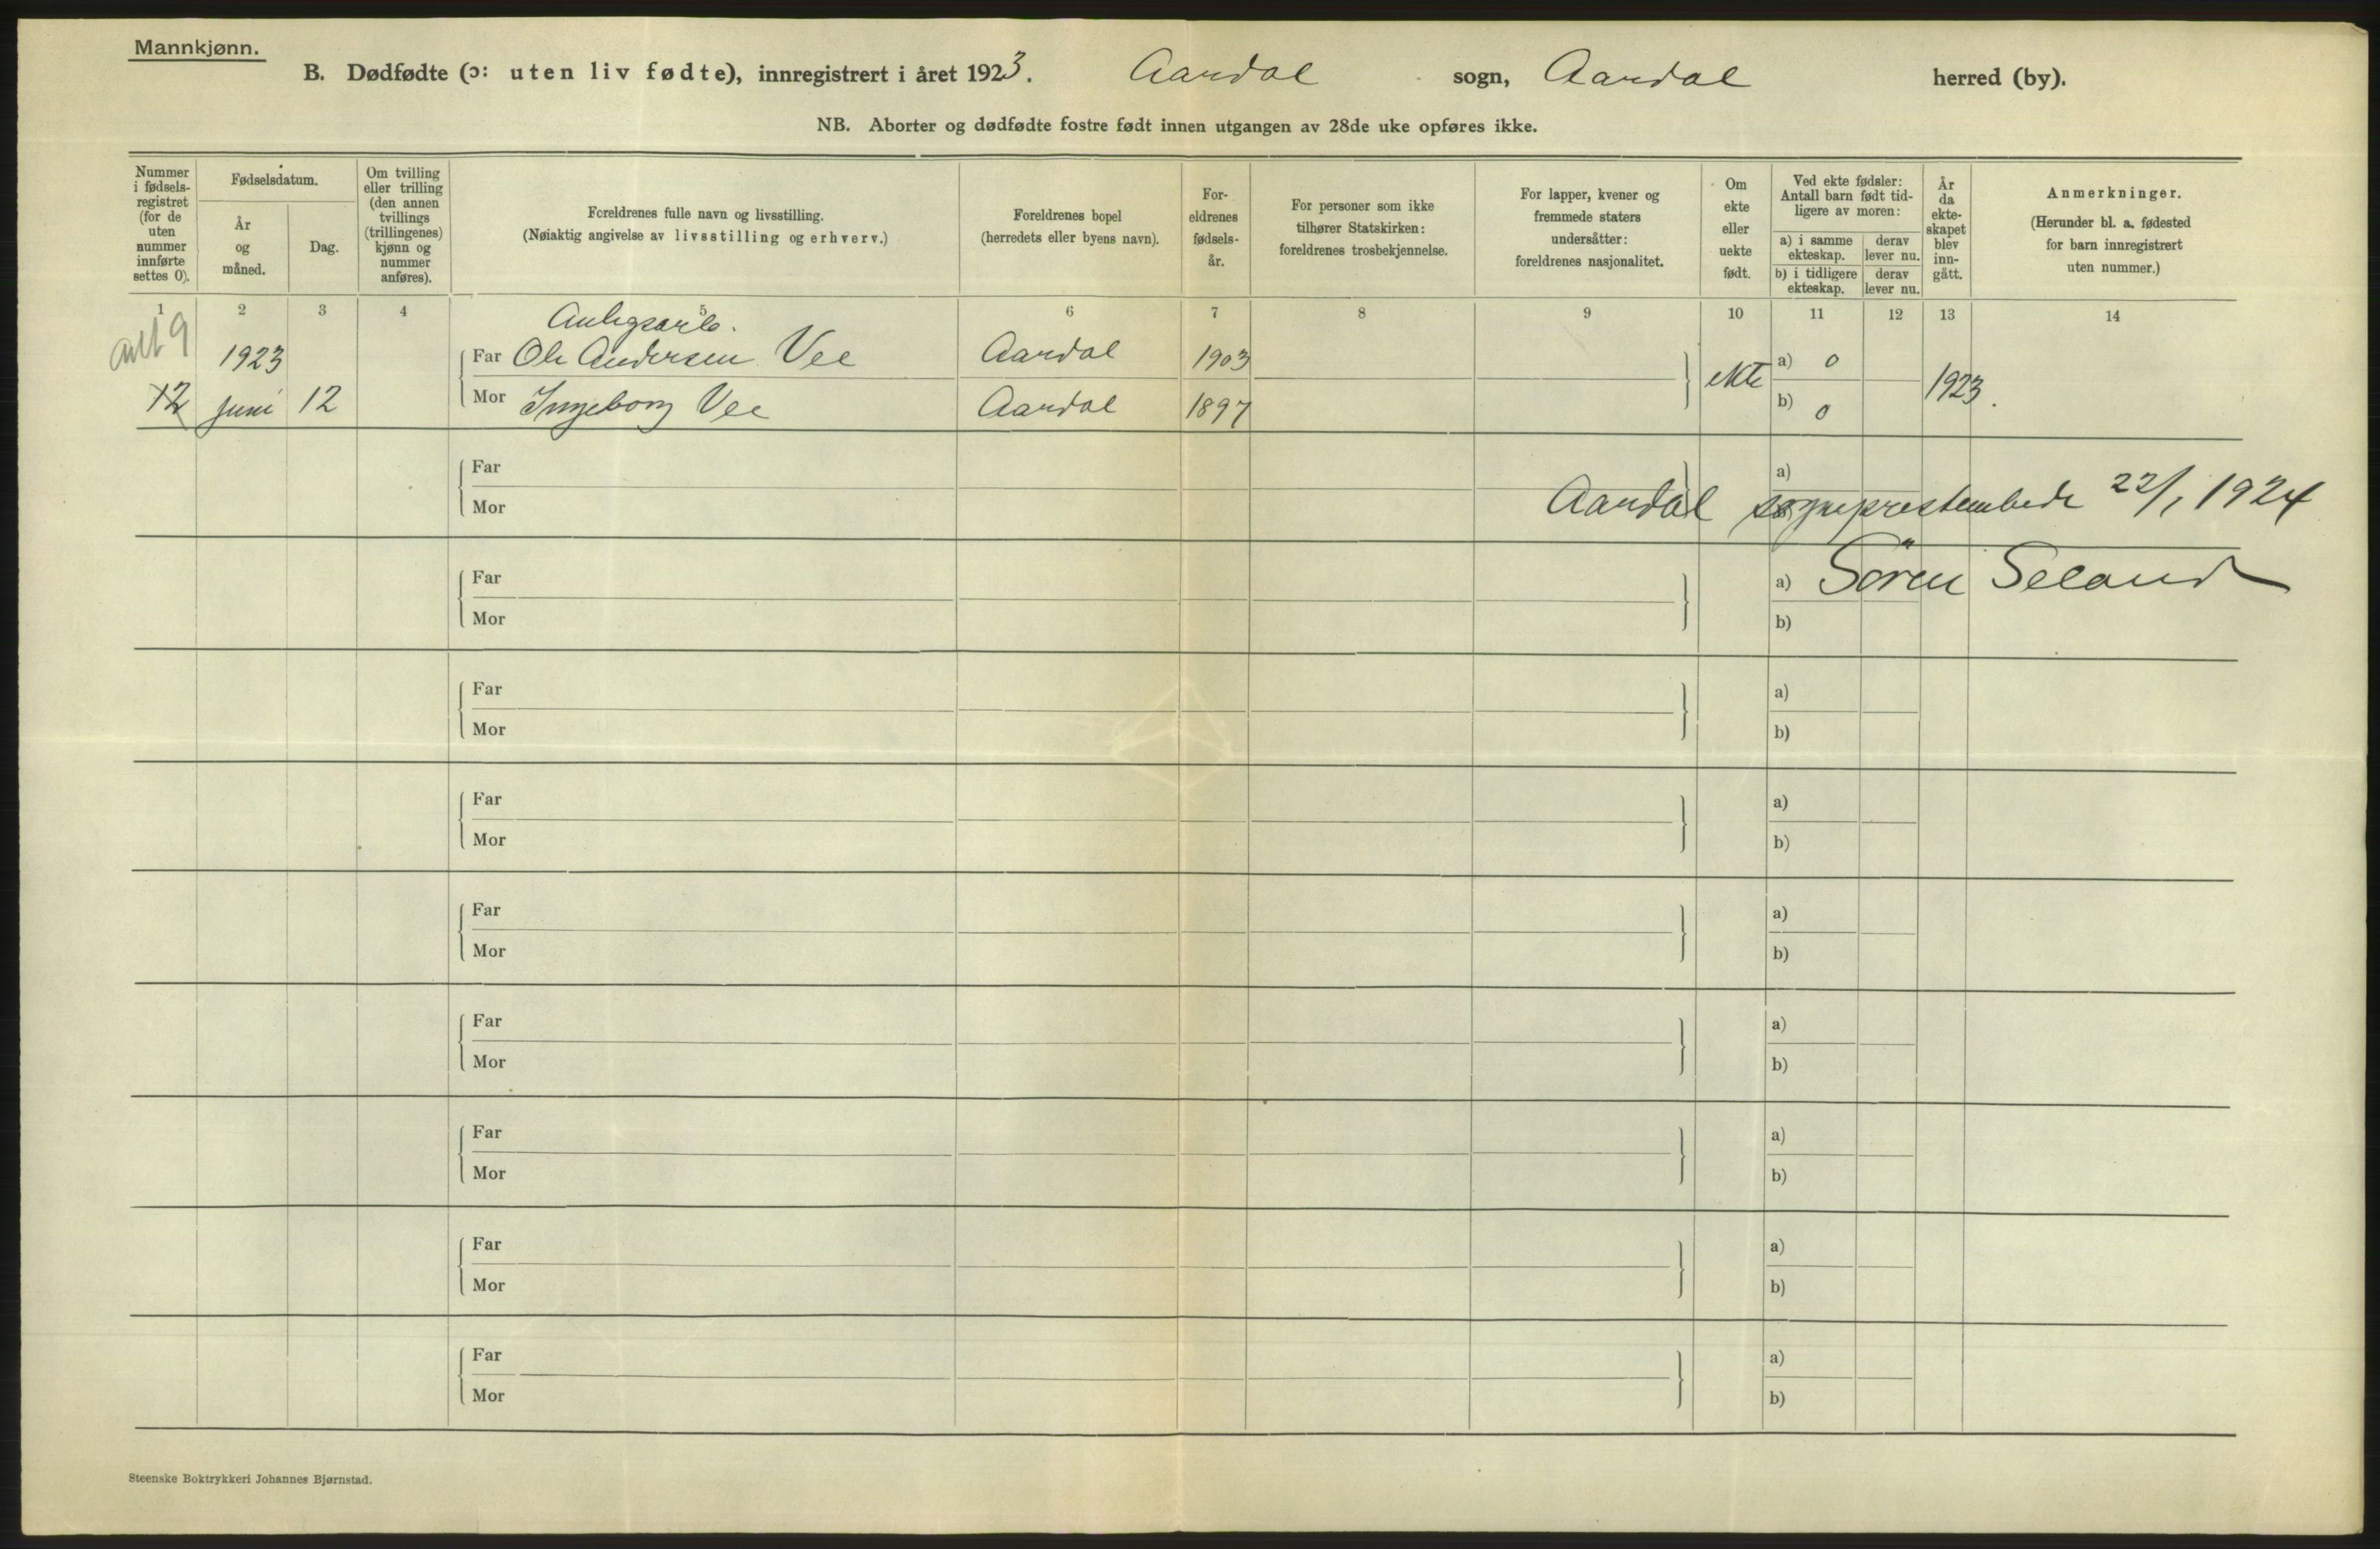 Mannkjønn.
B. Dødfødte (ɔ: uten liv fødte), innregistrert i året 1923. Aardal sogn, Aardal herred (by).
NB. Aborter og dødfødte fostre født innen utgangen av 28de uke opføres ikke.
Nummer i fødsels- registret (for de uten nummer innførte settes 0).
Fødselsdatum.
År og måned.
Dag.
Om tvilling eller trilling (den annen tvillings (trillingenes) kjønn og nummer anføres).
Foreldrenes fulle navn og livsstilling.
(Nøiaktig angivelse av livsstilling og erhverv.)
Foreldrenes bopel
(herredets eller byens navn).
For- eldrenes fødsels- år.
For personer som ikke tilhører Statskirken: foreldrenes trosbekjennelse.
For lapper, kvener og fremmede staters undersåtter: foreldrenes nasjonalitet.
Om ekte eller uekte født.
Ved ekte fødsler: Antall barn født tid- ligere av moren:
a) i samme ekteskap.
derav lever nu.
b) i tidligere ekteskap.
derav lever nu.
År da ekte- skapet blev inn- gått.
Anmerkninger.
(Herunder bl. a. fødested for barn innregistrert uten nummer.)
1 2 3 4 5 6 7 8 9 10 11 12 13 14
Anlegsarb.
9 1923 Far Ole Andersen Vee Aardal 1903 ekte a) 0 1923.
12 juni 12 Mor Ingeborg Vee Aardal 1897 b) 0
Far a)
Mor Aardal sogneprestembede 22/1 1924
Far a) Sören Seland
Mor b)
Far a)
Mor b)
Far a)
Mor b)
Far a)
Mor b)
Far a)
Mor b)
Far a)
Mor b)
Far a)
Mor b)
Far a)
Mor b)
Steenske Boktrykkeri Johannes Bjørnstad.